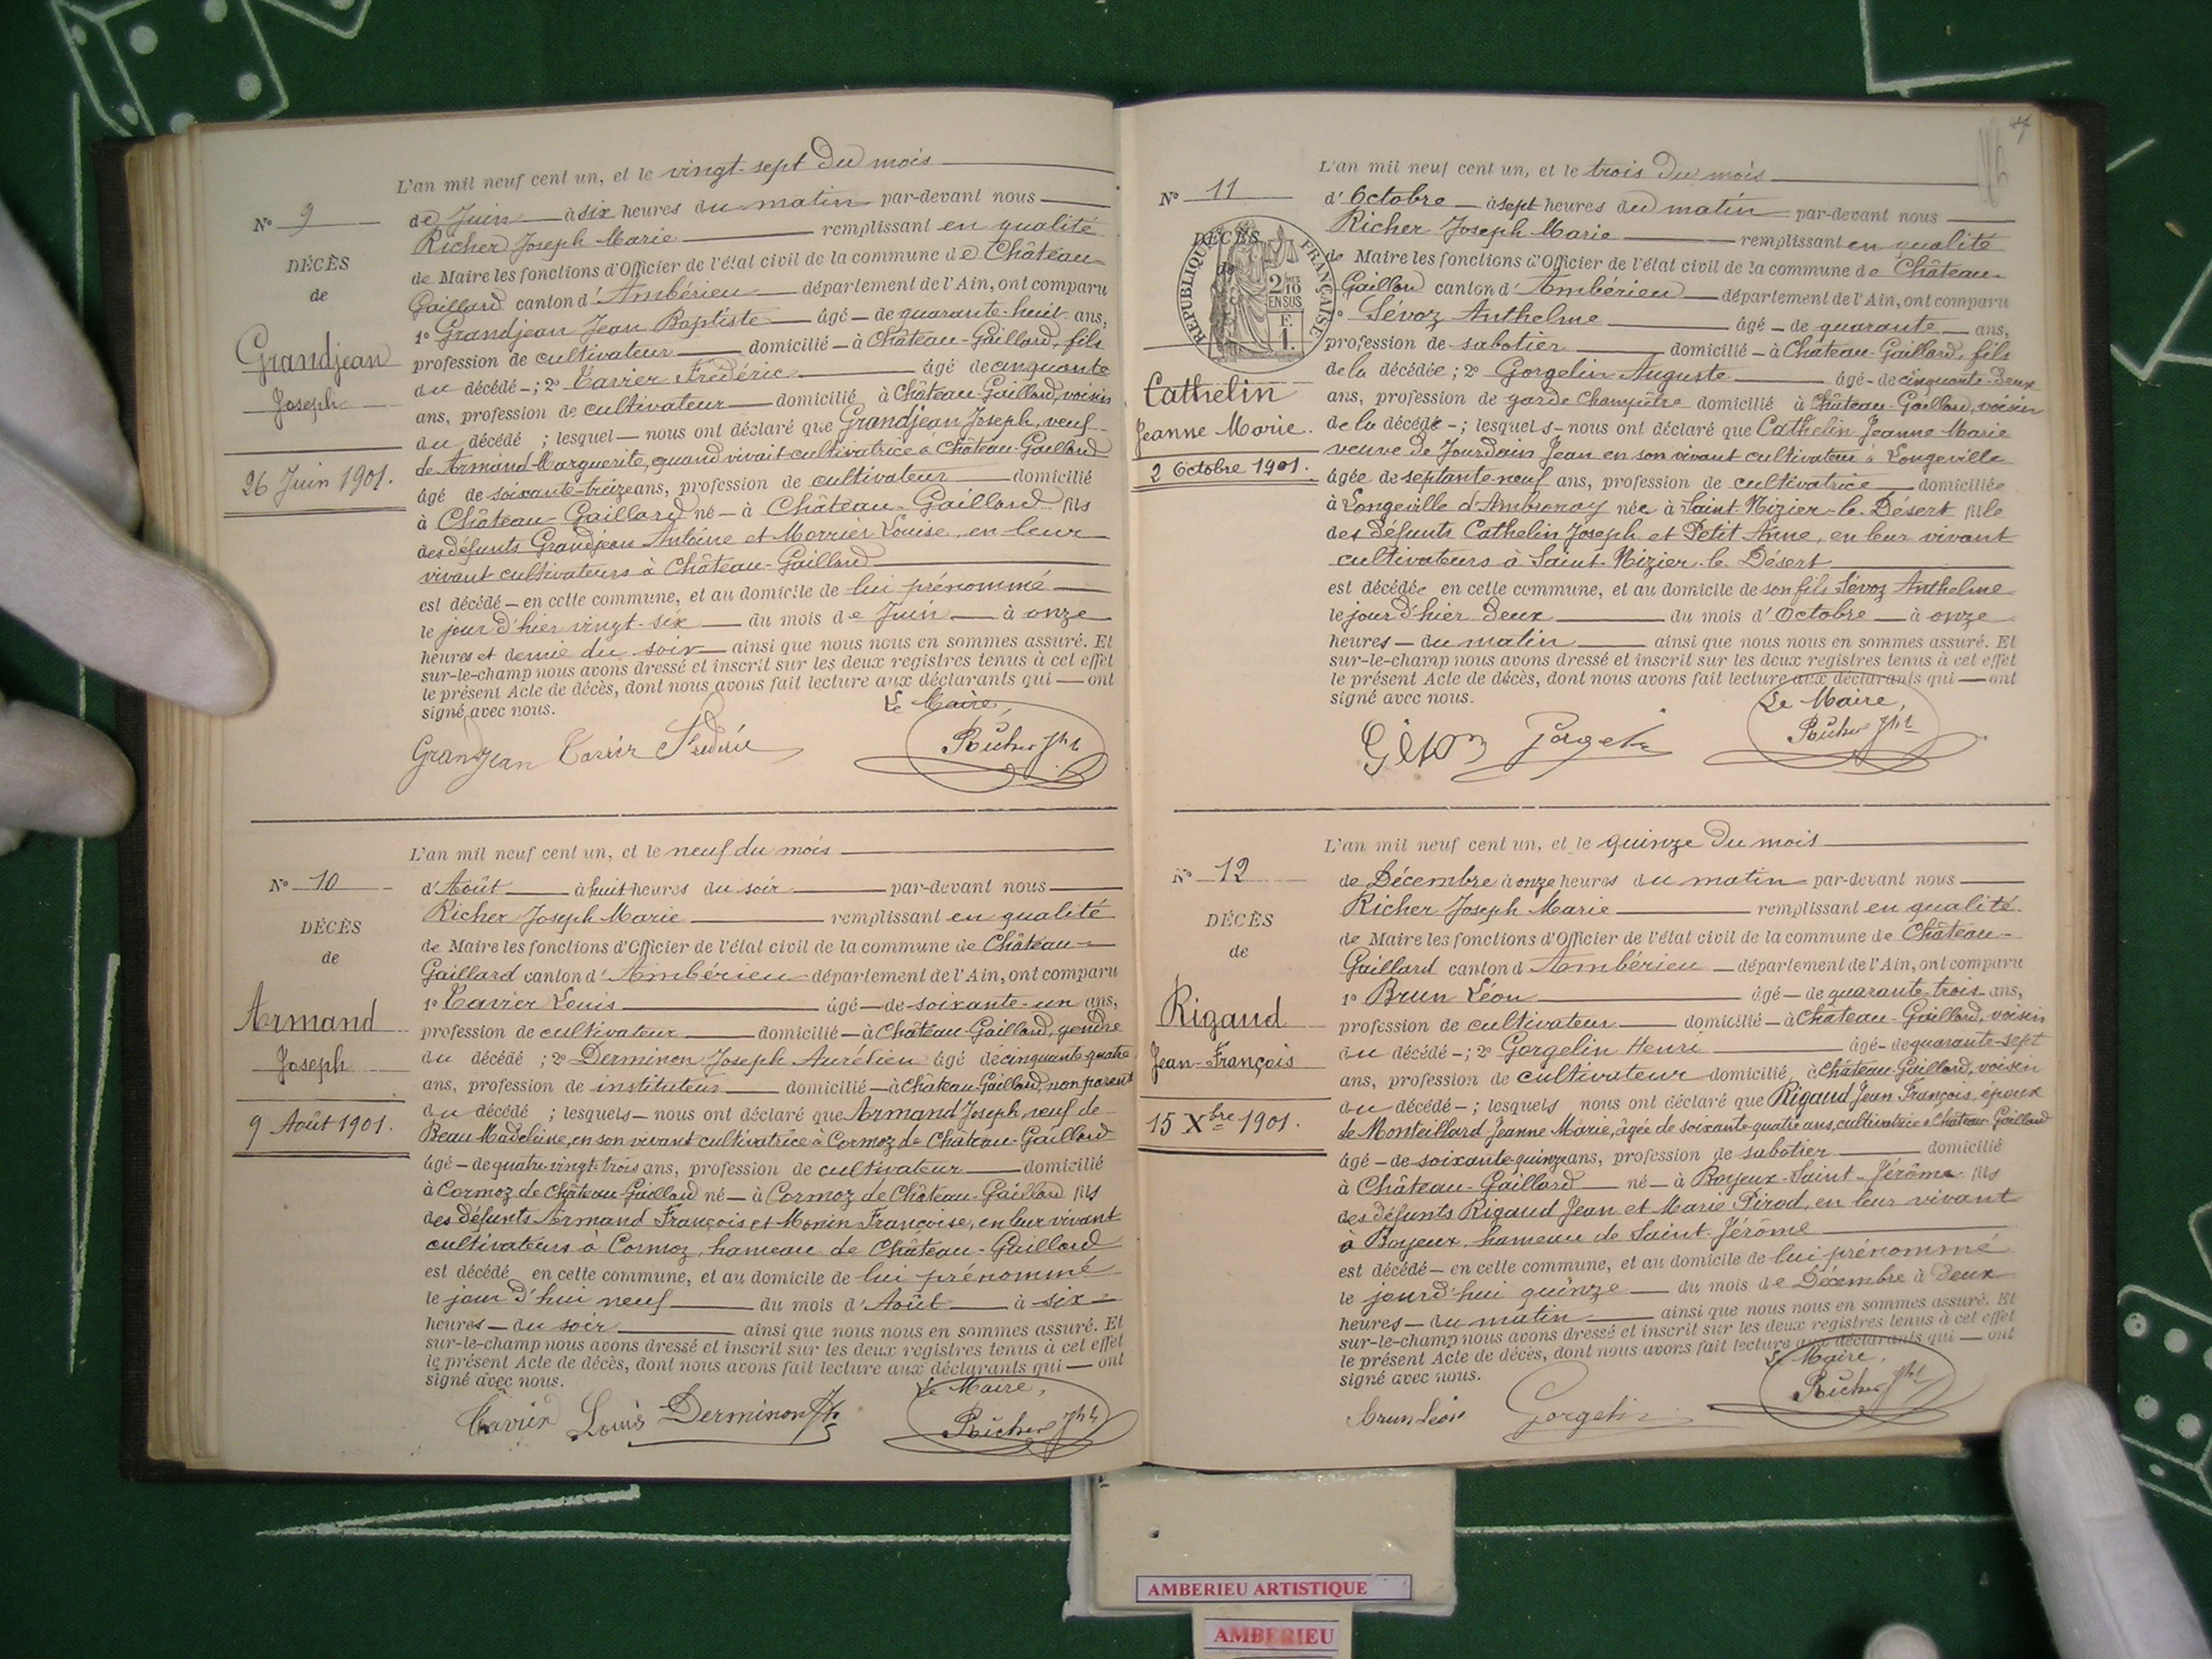 L'an mil neuf cent un, et le vingt-sept du mois
N° 9
de Juin à six heures du matin par-devant nous
Richer Joseph Marie remplissant en qualité
DÉCÈS
de Maire les fonctions d'Officier de l'état civil de la commune de Château-
de
Gaillard canton d'Ambérieu département de l'Ain, ont comparu
1° Grandjean Jean Baptiste âgé de quarante-huit ans,
Grandjean
profession de cultivateur domicilié à Château-Gaillard, fils
Joseph
du décédé ; 2° Tavier Frédéric âgé de cinquante
ans, profession de cultivateur domicilié à Château-Gaillard, voisin
du décédé ; lesquel nous ont déclaré que Grandjean Joseph, veuf
26 Juin 1901.
de Armand Marguerite, quand vivait cultivatrice à Château-Gaillard
âgé de soixante-treize ans, profession de cultivateur domicilié
à Château-Gaillard né à Château-Gaillard fils
des défunts Grandjean Antoine et Morrier Louise, en leur
vivant cultivateurs à Château-Gaillard
est décédé en cette commune, et au domicile de lui prénommé
le jour d'hier vingt-six du mois de Juin à onze
heures et demie du soir ainsi que nous nous en sommes assuré. Et
sur-le-champ nous avons dressé et inscrit sur les deux registres tenus à cet effet
le présent Acte de décès, dont nous avons fait lecture aux déclarants qui ont
signé avec nous.
Le Maire,
Grandjean Tavier Frédéric Richer Jph
L'an mil neuf cent un, et le neuf du mois
N° 10
d'Août à huit heures du soir par-devant nous
Richer Joseph Marie remplissant en qualité
DÉCÈS
de Maire les fonctions d'Officier de l'état civil de la commune de Château-
de
Gaillard canton d'Ambérieu département de l'Ain, ont comparu
1° Tavier Louis âgé de soixante-un ans,
Armand
profession de cultivateur domicilié à Château-Gaillard, gendre
Joseph
du décédé ; 2° Derminon Joseph Aurélien âgé de cinquante-quatre
ans, profession de instituteur domicilié à Château-Gaillard, non parent
du décédé ; lesquels nous ont déclaré que Armand Joseph, veuf de
9 Août 1901.
Beau Madeleine, en son vivant cultivatrice à Cormoz de Château-Gaillard
âgé de quatre-vingt-trois ans, profession de cultivateur domicilié
à Cormoz de Château-Gaillard né à Cormoz de Château-Gaillard fils
des défunts Armand François et Monin Françoise, en leur vivant
cultivateurs à Cormoz, hameau de Château-Gaillard
est décédé en cette commune, et au domicile de lui prénommé
le jour d'hui neuf du mois d'Août à six
heures du soir ainsi que nous nous en sommes assuré. Et
sur-le-champ nous avons dressé et inscrit sur les deux registres tenus à cet effet
le présent Acte de décès, dont nous avons fait lecture aux déclarants qui ont
signé avec nous.
Le Maire,
Tavier Louis Derminon Jh Richer Jph
L'an mil neuf cent un, et le trois du mois
N° 11
d'Octobre à sept heures du matin par-devant nous
Richer Joseph Marie remplissant en qualité
DÉCÈS
de
RÉPUBLIQUE FRANÇAISE
2/10 EN SUS
F. 1.
de Maire les fonctions d'Officier de l'état civil de la commune de Château-
Gaillard canton d'Ambérieu département de l'Ain, ont comparu
1° Sévoz Anthelme âgé de quarante ans,
profession de sabotier domicilié à Château-Gaillard, fils
Cathelin
de la décédée ; 2° Gorgelin Auguste âgé de cinquante-deux
ans, profession de garde champêtre domicilié à Château-Gaillard, voisin
Jeanne Marie.
de la décédé ; lesquels nous ont déclaré que Cathelin Jeanne Marie
veuve de Jourdain Jean en son vivant cultivateur à Longeville
2 Octobre 1901.
âgée de septante-neuf ans, profession de cultivatrice domiciliée
à Longeville d'Ambronay née à Saint-Nizier-le-Désert fille
des défunts Cathelin Joseph et Petit Anne, en leur vivant
cultivateurs à Saint-Nizier-le-Désert
est décédée en cette commune, et au domicile de son fils Sévoz Anthelme
le jour d'hier deux du mois d'Octobre à onze
heures du matin ainsi que nous nous en sommes assuré. Et
sur-le-champ nous avons dressé et inscrit sur les deux registres tenus à cet effet
le présent Acte de décès, dont nous avons fait lecture aux déclarants qui ont
signé avec nous.
Le Maire,
Gorgelin Richer Jph
L'an mil neuf cent un, et le quinze du mois
N° 12
de Décembre à onze heures du matin par-devant nous
Richer Joseph Marie remplissant en qualité
DÉCÈS
de Maire les fonctions d'Officier de l'état civil de la commune de Château-
de
Gaillard canton d'Ambérieu département de l'Ain, ont comparu
1° Brun Léon âgé de quarante-trois ans,
Rigaud
profession de cultivateur domicilié à Château-Gaillard, voisin
Jean-François
du décédé ; 2° Gorgelin Henri âgé de quarante-sept
ans, profession de cultivateur domicilié à Château-Gaillard, voisin
du décédé ; lesquels nous ont déclaré que Rigaud Jean François, époux
15 Xbre 1901.
de Monteillard Jeanne Marie, âgée de soixante-quatre ans, cultivatrice à Château-Gaillard
âgé de soixante-quinze ans, profession de sabotier domicilié
à Château-Gaillard né à Boyeux-Saint-Jérôme fils
des défunts Rigaud Jean et Marie Pirod, en leur vivant
à Boyeux, hameau de Saint-Jérôme
est décédé en cette commune, et au domicile de lui prénommé
le jourd'hui quinze du mois de Décembre à deux
heures du matin ainsi que nous nous en sommes assuré. Et
sur-le-champ nous avons dressé et inscrit sur les deux registres tenus à cet effet
le présent Acte de décès, dont nous avons fait lecture aux déclarants qui ont
signé avec nous.
Le Maire,
Brun Léon Gorgelin Richer Jph
AMBERIEU ARTISTIQUE
AMBERIEU